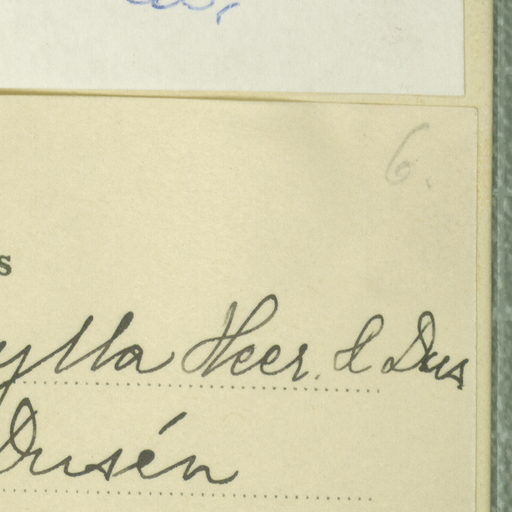 6.
s
ylla Heer. & Dus
Dusén